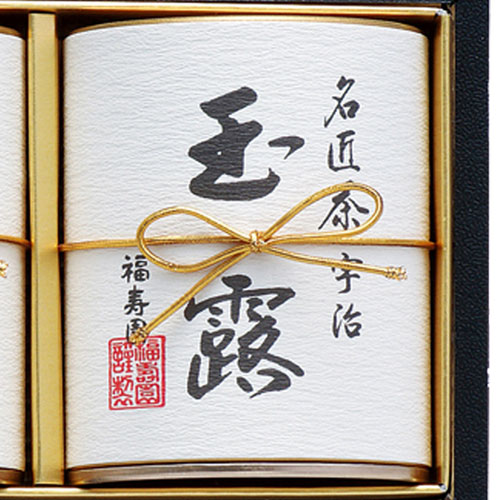 名匠茶宇治
玉露
福寿園
福寿園
謹製